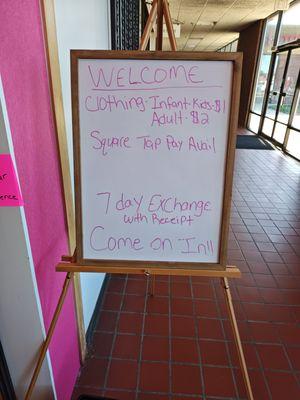 WELCOME
Clothing - Infant - Kids - $1
Adult - $2
Square Tap Pay Avail
7 day Exchange
with Receipt
Come on In!!